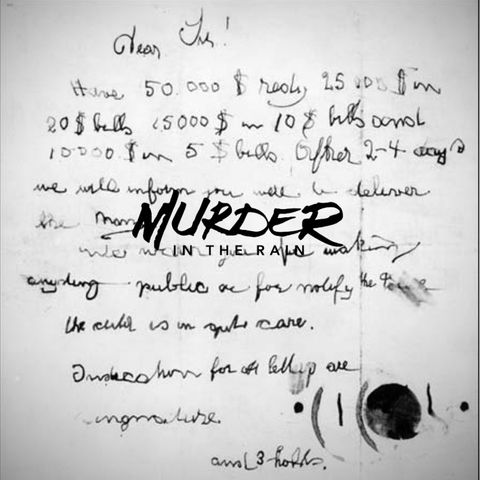 Dear Sir!
Have 50.000 $ redy 25 000 $ in
20 $ bills 15000 $ in 10 $ bills and
10000 $ in 5 $ bills After 2-4 days
we will inform you were to deliver
the mony
MURDER
IN THE RAIN
we warn you for making
anyding public or for notify the
the child is in gut care.
Indication for all letters are
singnature
and 3 holds.